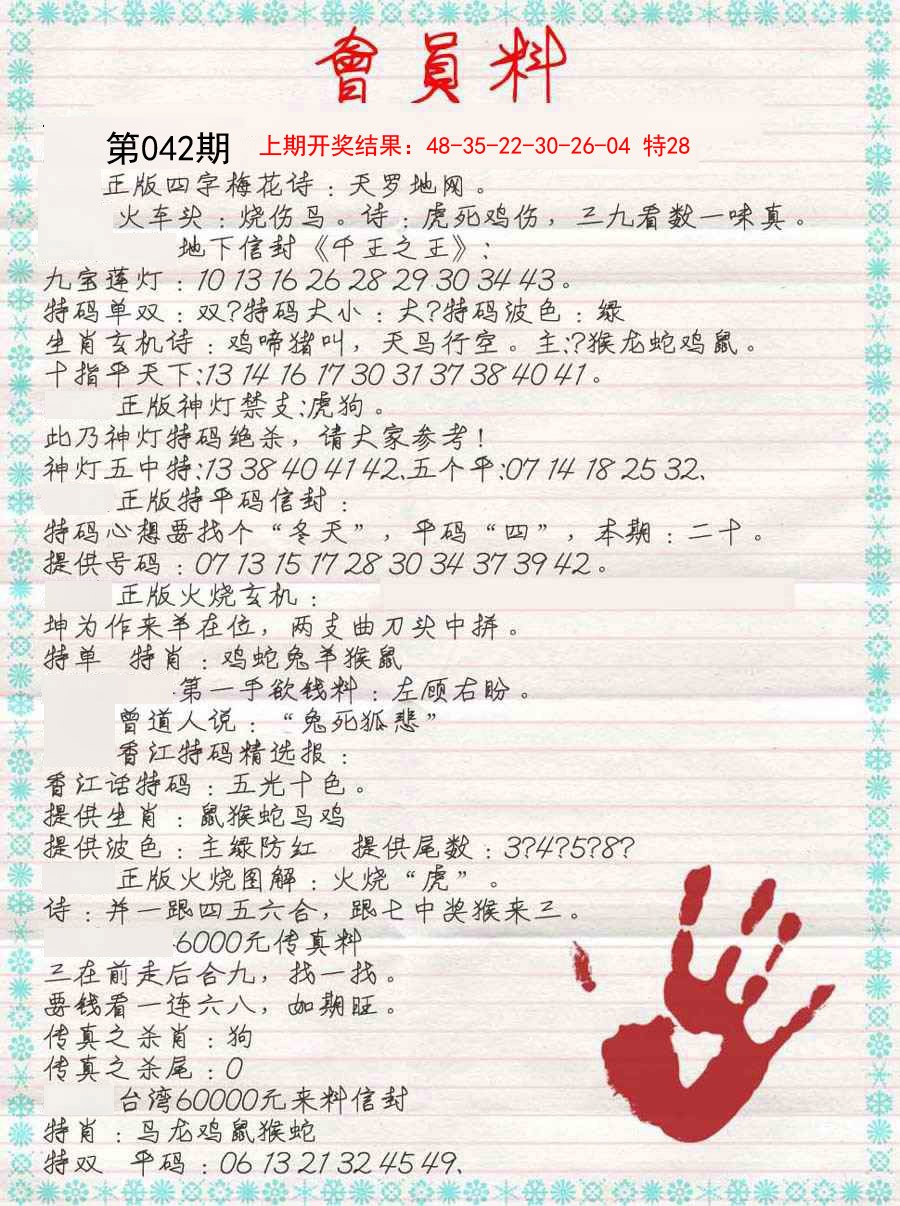 會員料
第042期 上期开奖结果：48-35-22-30-26-04 特28
正版四字梅花诗：天罗地网。
火车头：烧伤鸟。诗：虎死鸡伤，三九看数一味真。
地下信封《千王之王》：
九宝莲灯：10 13 16 26 28 29 30 34 43。
特码单双：双?特码大小：大?特码波色：绿
生肖玄机诗：鸡啼猪叫，天鸟行空。主:?猴龙蛇鸡鼠。
十指平天下:13 14 16 17 30 31 37 38 40 41。
正版神灯禁支:虎狗。
此乃神灯特码绝杀，请大家参考！
神灯五中特:13 38 40 41 42、五个平:07 14 18 25 32、
正版特平码信封：
特码心想要找个“冬天”，平码“四”，本期：二十。
提供号码：07 13 15 17 28 30 34 37 39 42。
正版火烧玄机：
坤为作来羊在位，两支曲刀头中拼。
特单 特肖：鸡蛇兔羊猴鼠
第一手欲钱料：左顾右盼。
曾道人说：“兔死狐悲”
香江特码精选报：
香江话特码：五光十色。
提供生肖：鼠猴蛇马鸡
提供波色：主绿防红 提供尾数：3?4?5?8?
正版火烧图解：火烧“虎”。
诗：并一跟四五六合，跟七中奖猴来三。
6000元传真料
三在前走后合九，找一找。
要钱看一连六八，如期旺。
传真之杀肖：狗
传真之杀尾：0
台湾60000元来料信封
特肖：马龙鸡鼠猴蛇
特双 平码：06 13 21 32 45 49、